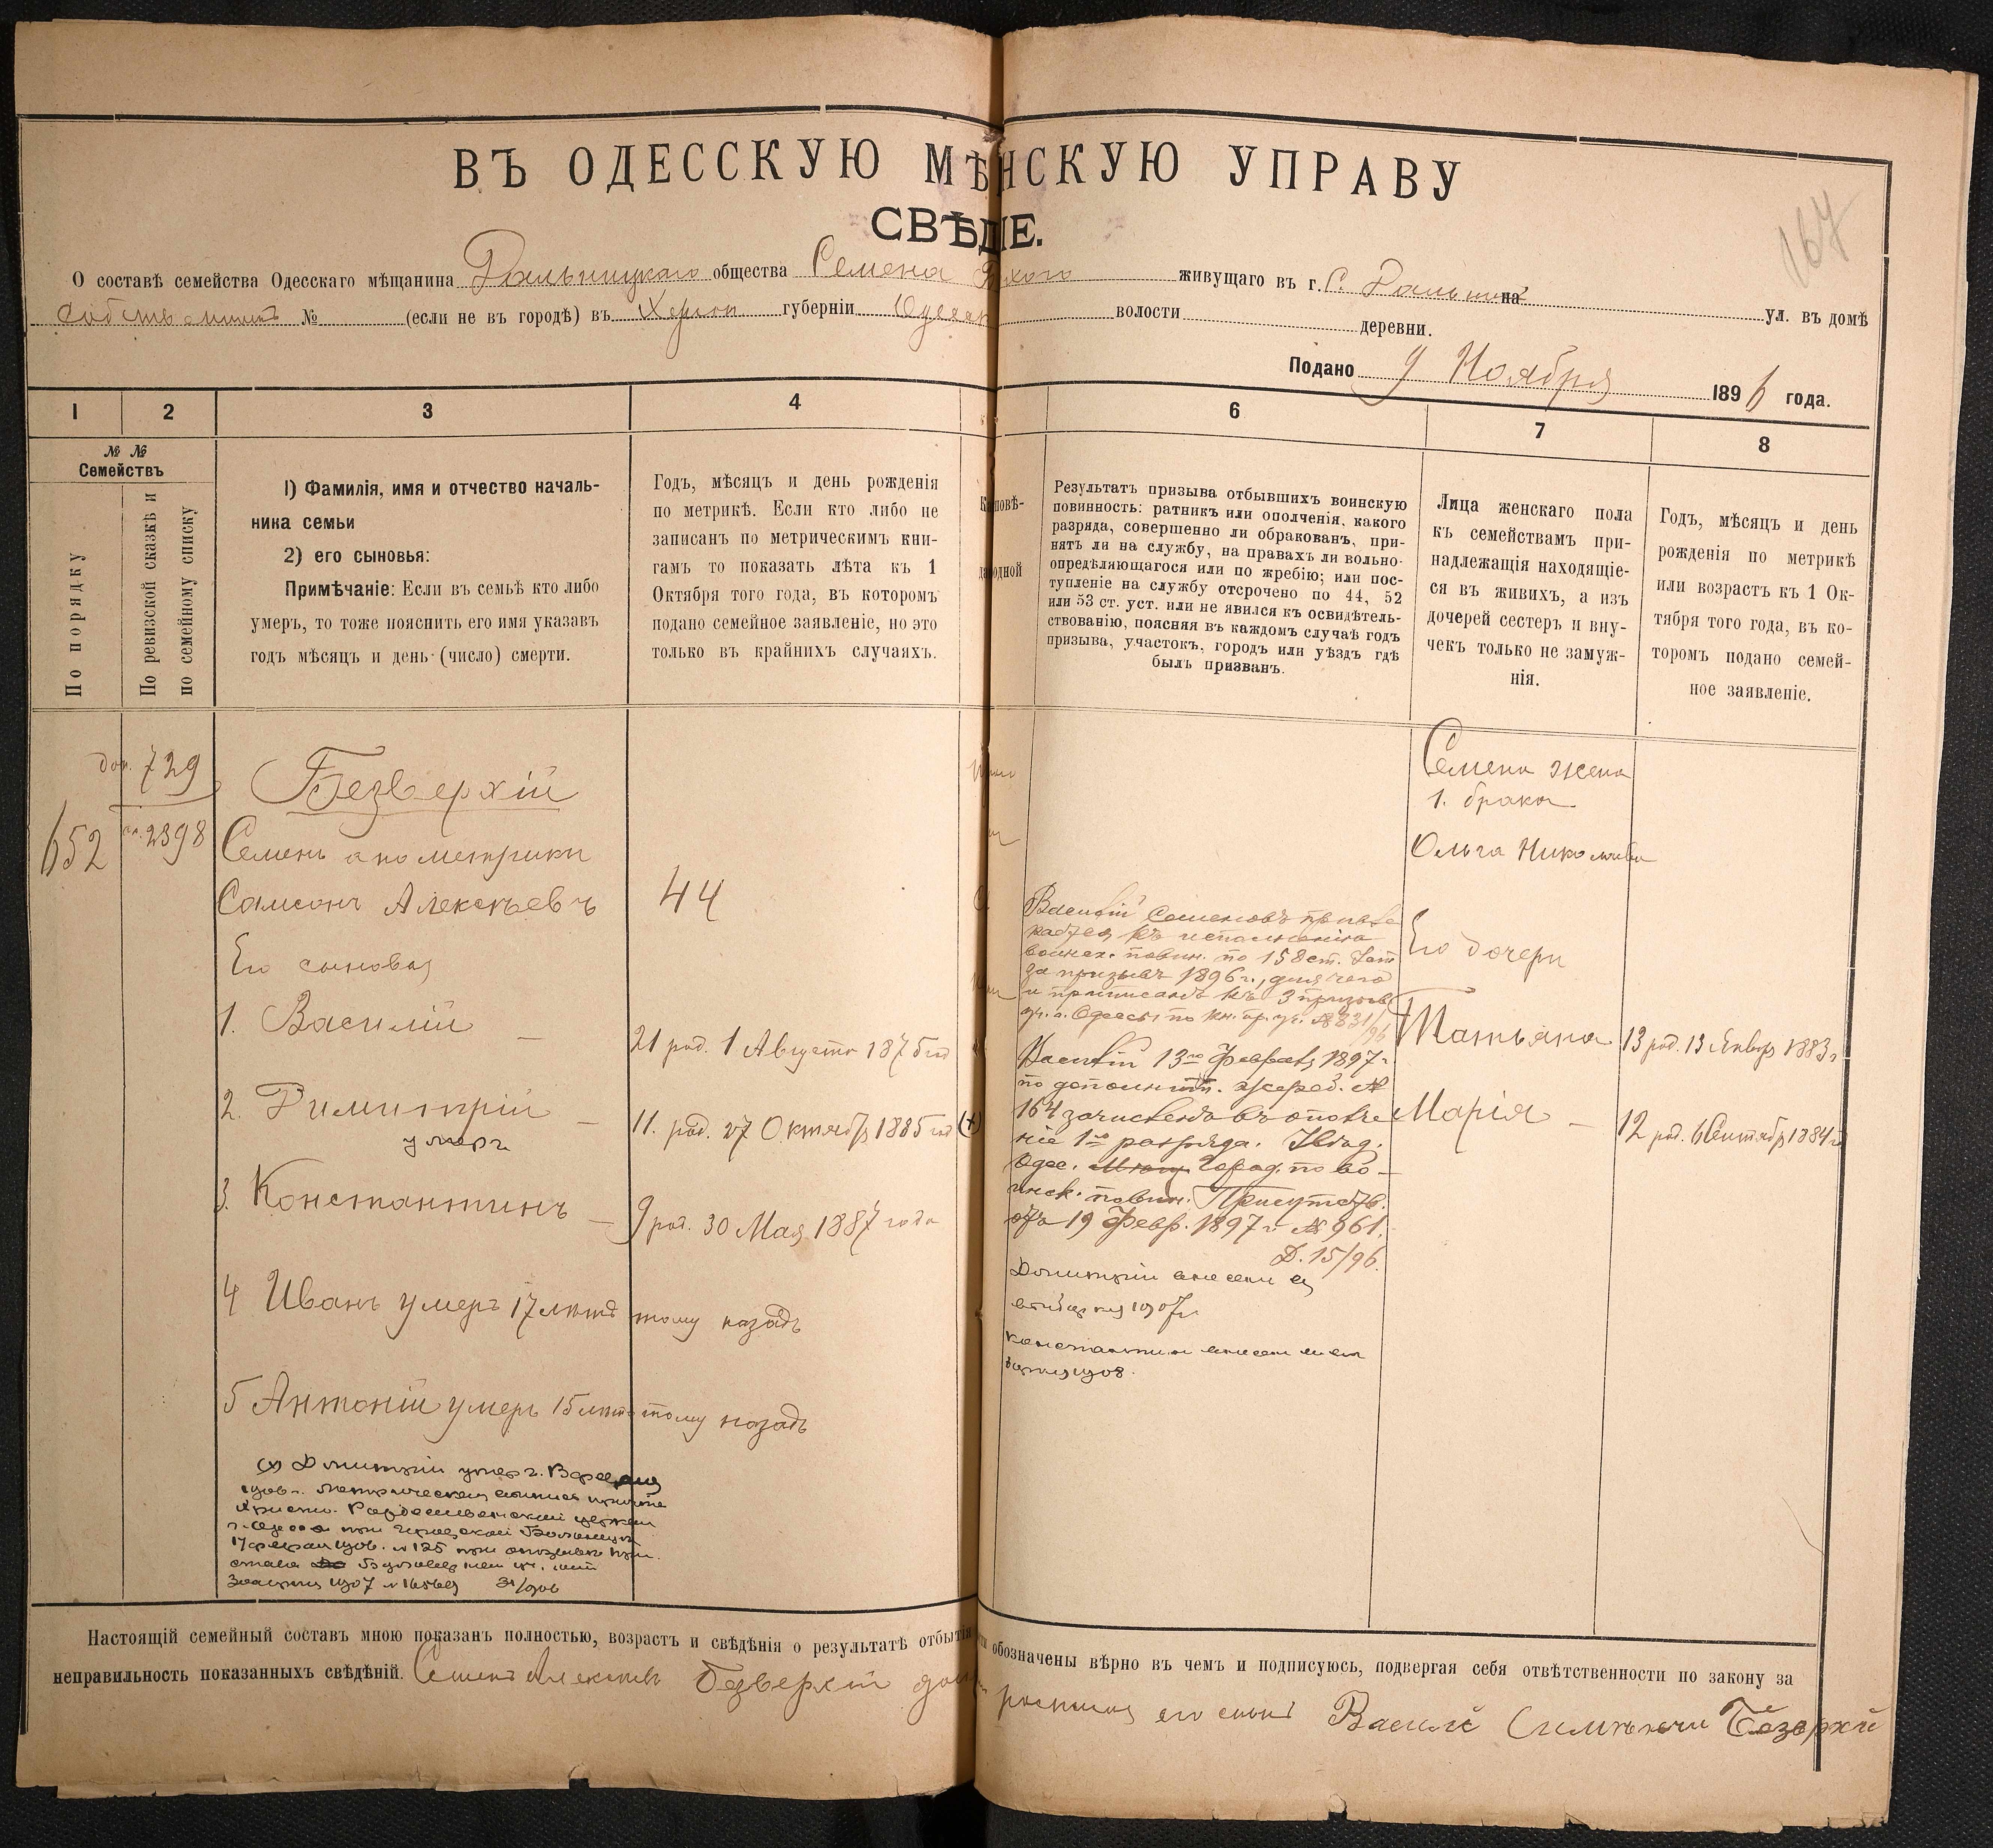 167
ВЪ ОДЕССКУЮ МѢ НСКУЮ УПРАВУ
СВѢДѢ IE.
О составѣ семейства Одесскаго мѣщанина Дальницкаго общества Семена хого живущаго въ г. С. Дальник на
№ (если не въ городѣ) въ Херсон губерніи Одесск волости деревни. ул. въ домѣ
Подано 9 Ноября 1896 года.
1 2 3 4 6 7 8
№ №
Семействъ
По порядку
По ревизской сказкѣ и
по семейному списку
1) Фамилія, имя и отчество началь-
ника семьи
2) его сыновья:
Примѣчаніе: Если въ семьѣ кто либо
умеръ, то тоже пояснить его имя указавъ
годъ мѣсяцъ и день (число) смерти.
Годъ, мѣсяцъ и день рожденія
по метрикѣ. Если кто либо не
записанъ по метрическимъ кни-
гамъ то показать лѣта къ 1
Октября того года, въ которомъ
подано семейное заявленіе, но это
только въ крайнихъ случаяхъ.
повѣ-
одной
Результатъ призыва отбывшихъ воинскую
повинность: ратникъ или ополченія, какого
разряда, совершенно ли обракованъ, при-
нятъ ли на службу, на правахъ ли вольно-
опредѣляющагося или по жребію; или пос-
тупленіе на службу отсрочено по 44, 52
или 53 ст. уст. или не явился къ освидѣтель-
ствованію, поясняя въ каждомъ случаѣ годъ
призыва, участокъ, городъ или уѣздъ гдѣ
былъ призванъ.
Лица женскаго пола
къ семействамъ при-
надлежащія находящіе-
ся въ живихъ, а изъ
дочерей сестеръ и вну-
чекъ только не замуж-
нія.
Годъ, мѣсяцъ и день
рожденія по метрикѣ
или возрастъ къ 1 Ок-
тября того года, въ ко-
торомъ подано семей-
ное заявленіе.
652
доп. 729
2398
Безверхій
Семенъ а по метрики
Самсонъ Алексѣевъ 44
Его сыновья
1. Василій — 21 род. 1 Августа 1875 год
2. Димитрій — 11. род. 27 Октября 1885 год (+)
умеръ
3. Константинъ — 9 род. 30 Мая 1887 года
4 Иванъ умеръ 17 лѣтъ тому назадъ
5 Антоній умеръ 15 лѣтъ тому назадъ
(х) Димитрій умер
1906 г. Метрическая
Христо. Рождественской церкви
г. Одессы при Городской Больницѣ
17 1906. № 125 при
1907 № 31/906
Василій Семеновъ привле
кается къ исполненію
воинск. повин. по 158 ст.
за призывъ 1896 г., для чего
и приписанъ къ 3 призыв
уч. г. Одессы по кн. пр. уч. № 831/96
Василій 13го Февраля 1897 г
по дополнит. жереб. №
164 зачисленъ въ ополче
ніе 1го разряда. Увѣд.
Одес. Город. по во-
инск. повин. Присутств.
отъ 19 Февр. 1897 г № 961.
Д. 15/96.
Димитрій внесен въ
1907 г
Константин внесен
1908.
Семена жена
1. брака
Ольга Николаева
Его дочери
Татьяна 13 род. 13 Январ 1883 г
Марія — 12 род. 6 Сентябр 1884 г
Настоящій семейный составъ мною показанъ полностью, возрастъ и свѣдѣнія о результатѣ отбытія обозначены вѣрно въ чемъ и подписуюсь, подвергая себя отвѣтственности по закону за
неправильность показанныхъ свѣдѣній. Семенъ Алексѣевъ Безверхій его сынъ Василі